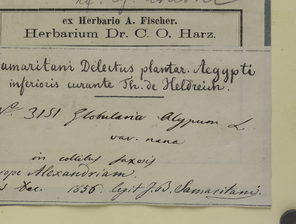 ex Herbario A. Fischer.
Herbarium Dr. C. O. Harz.
amaritani Delectus plantar. Aegypti
inferioris curante Th. de Heldreich.
No. 3151 Globularia Alypum L.
var. nana
in collibus saxosis
rope Alexandriam.
Dec. 1856. legit J. B. Samaritani.